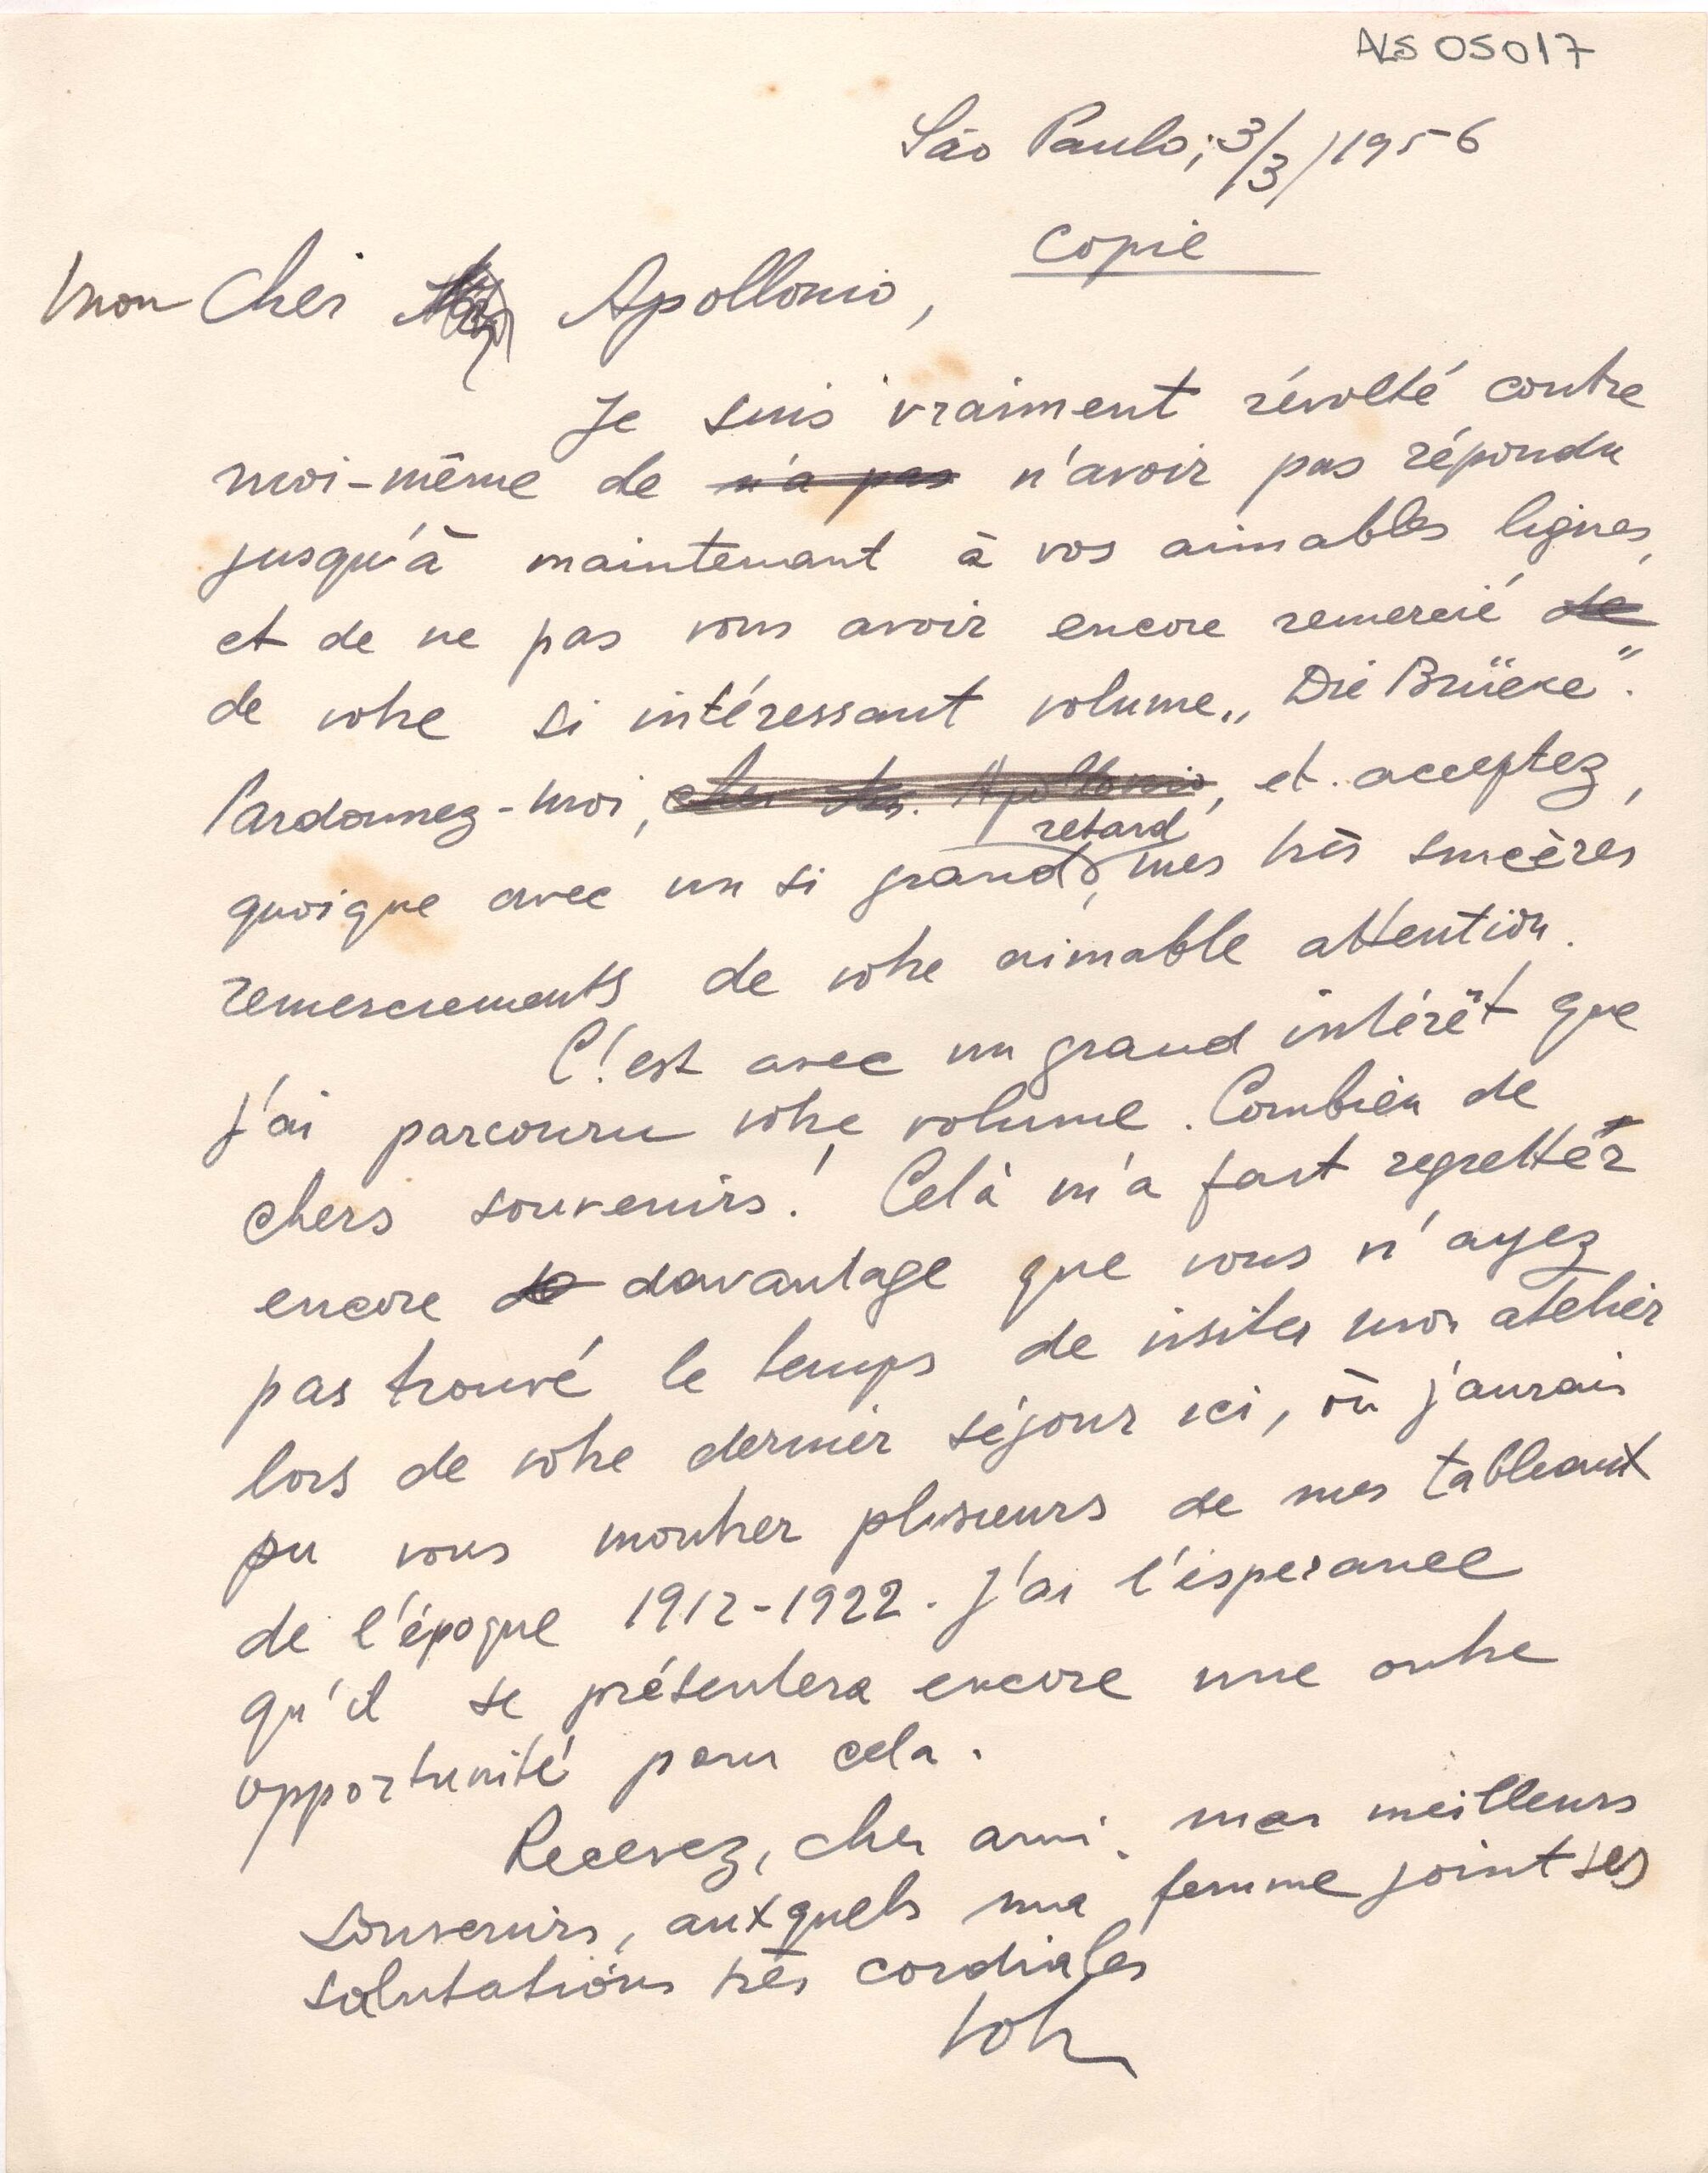 ALS 05017
São Paulo, 3/3/1956
Copie
Mon Cher Apollonio,
Je suis vraiment révolté contre
moi-même de n'a pas n'avoir pas répondu
jusqu'à maintenant à vos aimables lignes,
et de ne pas vous avoir encore remercié de
de votre si intéressant volume „Die Brücke".
Pardonnez-moi, cher Mr. Apollonio, et acceptez,
retard
quoique avec un si grand, mes très sincères
remerciements de votre aimable attention.
C'est avec un grand intérêt que
j'ai parcouru votre volume. Combien de
chers souvenirs! Celà m'a fait regretter
encore de davantage que vous n'ayez
pas trouvé le temps de visiter mon atelier
lors de votre dernier séjour ici, où j'aurais
pu vous montrer plusieurs de mes tableaux
de l'époque 1912-1922. J'ai l'esperance
qu'il se présentera encore une autre
opportunité pour cela.
Recevez, cher ami, mes meilleurs
souvenirs, auxquels ma femme joint ses
salutations très cordiales